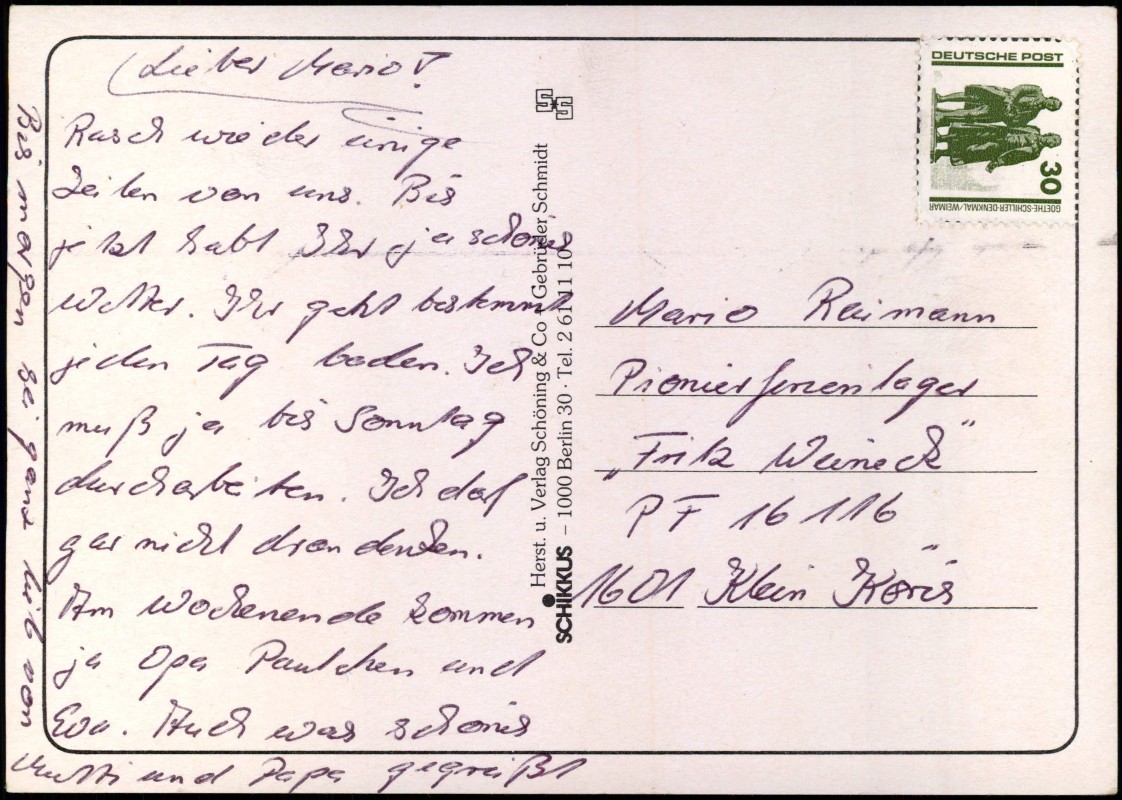 Lieber Mario!
Rasch wieder einige
Zeilen von uns. Bis
jetzt habt Ihr ja schönes
Wetter. Ihr geht bestimmt
jeden Tag baden. Ich
muß ja bis Sonntag
durcharbeiten. Ich darf
gar nicht dran denken.
Am Wochenende kommen
ja Opa Paulchen und
Eva. Auch was schönes
Bis morgen sei ganz lieb von
Mutti und Papa gegrüßt
Herst. u. Verlag Schöning & Co + Gebrüder Schmidt
SCHIKKUS – 1000 Berlin 30 · Tel. 2 61 11 10
DEUTSCHE POST
30
GOETHE-SCHILLER-DENKMAL/WEIMAR
Mario Reimann
Pionierferienlager
„Fritz Weineck"
PF 16 116
1601 Klein Köris